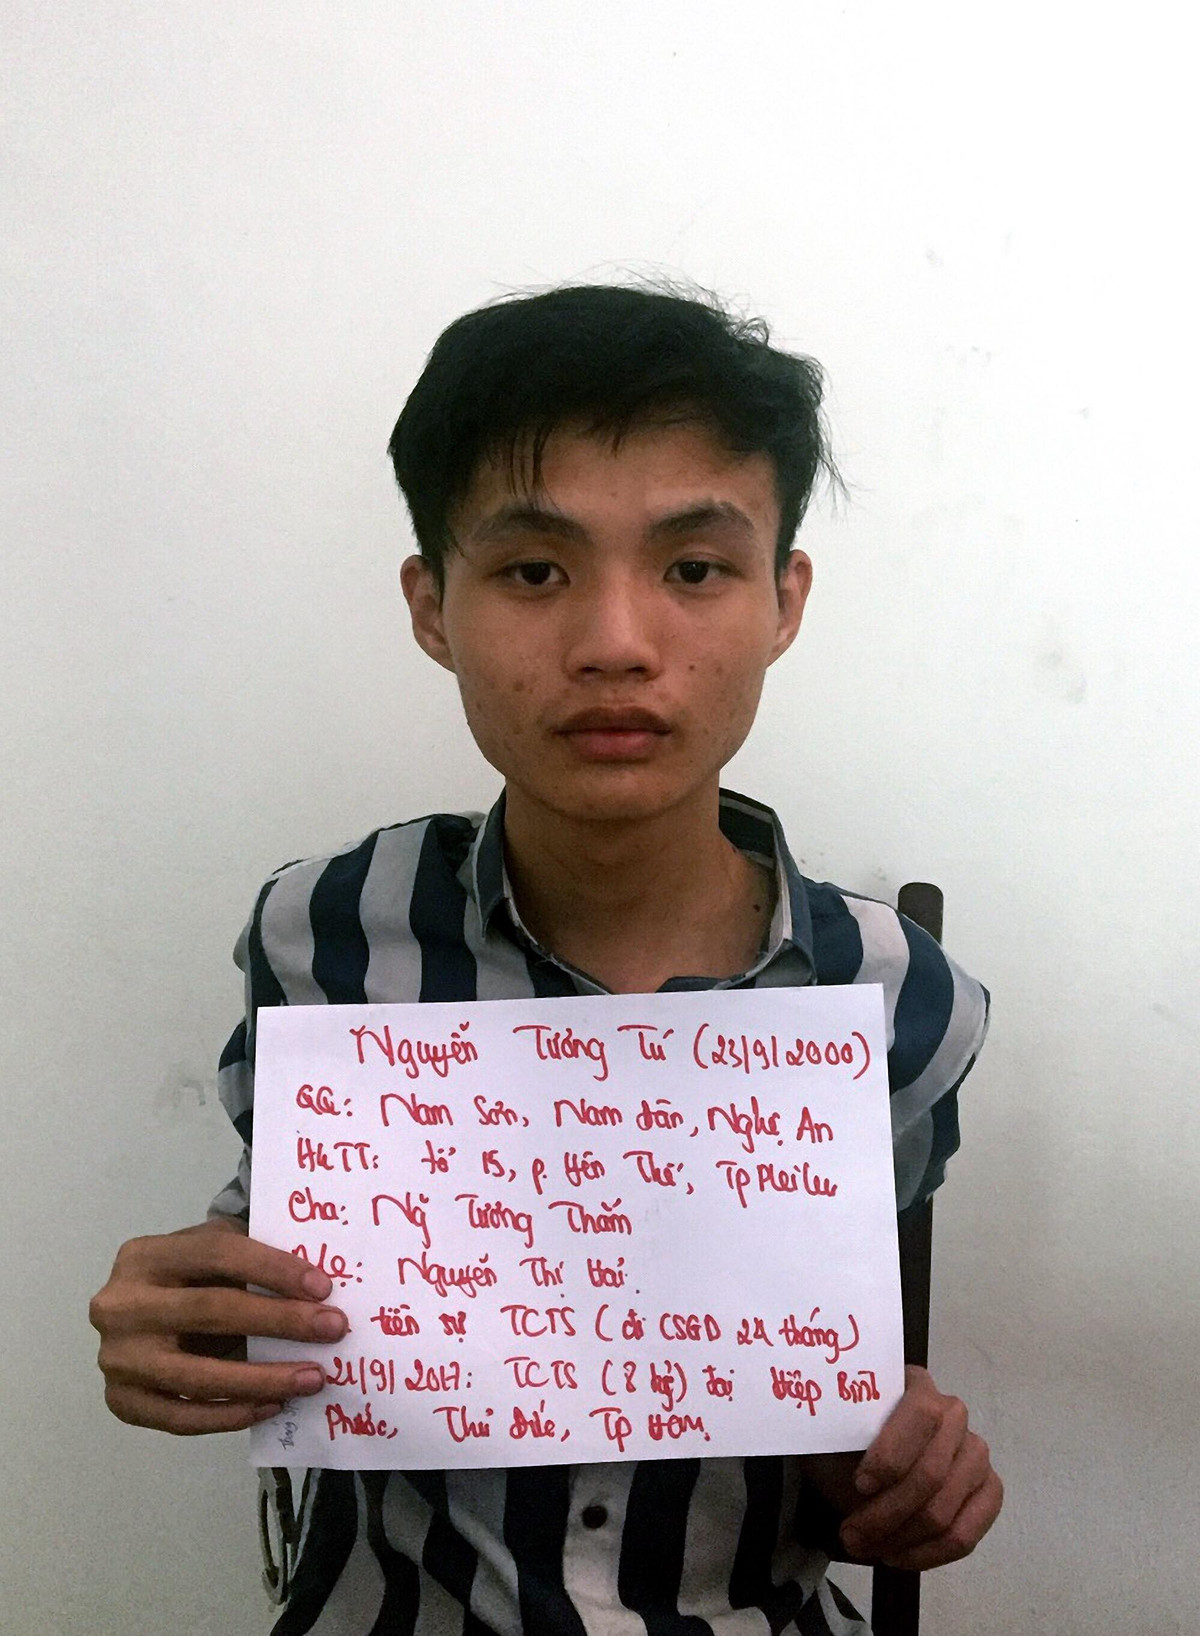 Nguyễn Tường Tú (23/9/2000)
QQ: Nam Sơn, Nam Đàn, Nghệ An
HKTT: tổ 15, p. Yên Thế, Tp Pleiku
Cha: Ng Tường Thắm
Mẹ: Nguyễn Thị
tiền sự TCTS (đi CSGD 24 tháng)
21/9/2017: TCTS (8 tr) tại Hiệp Bình
Phước, Thủ Đức, Tp HCM.